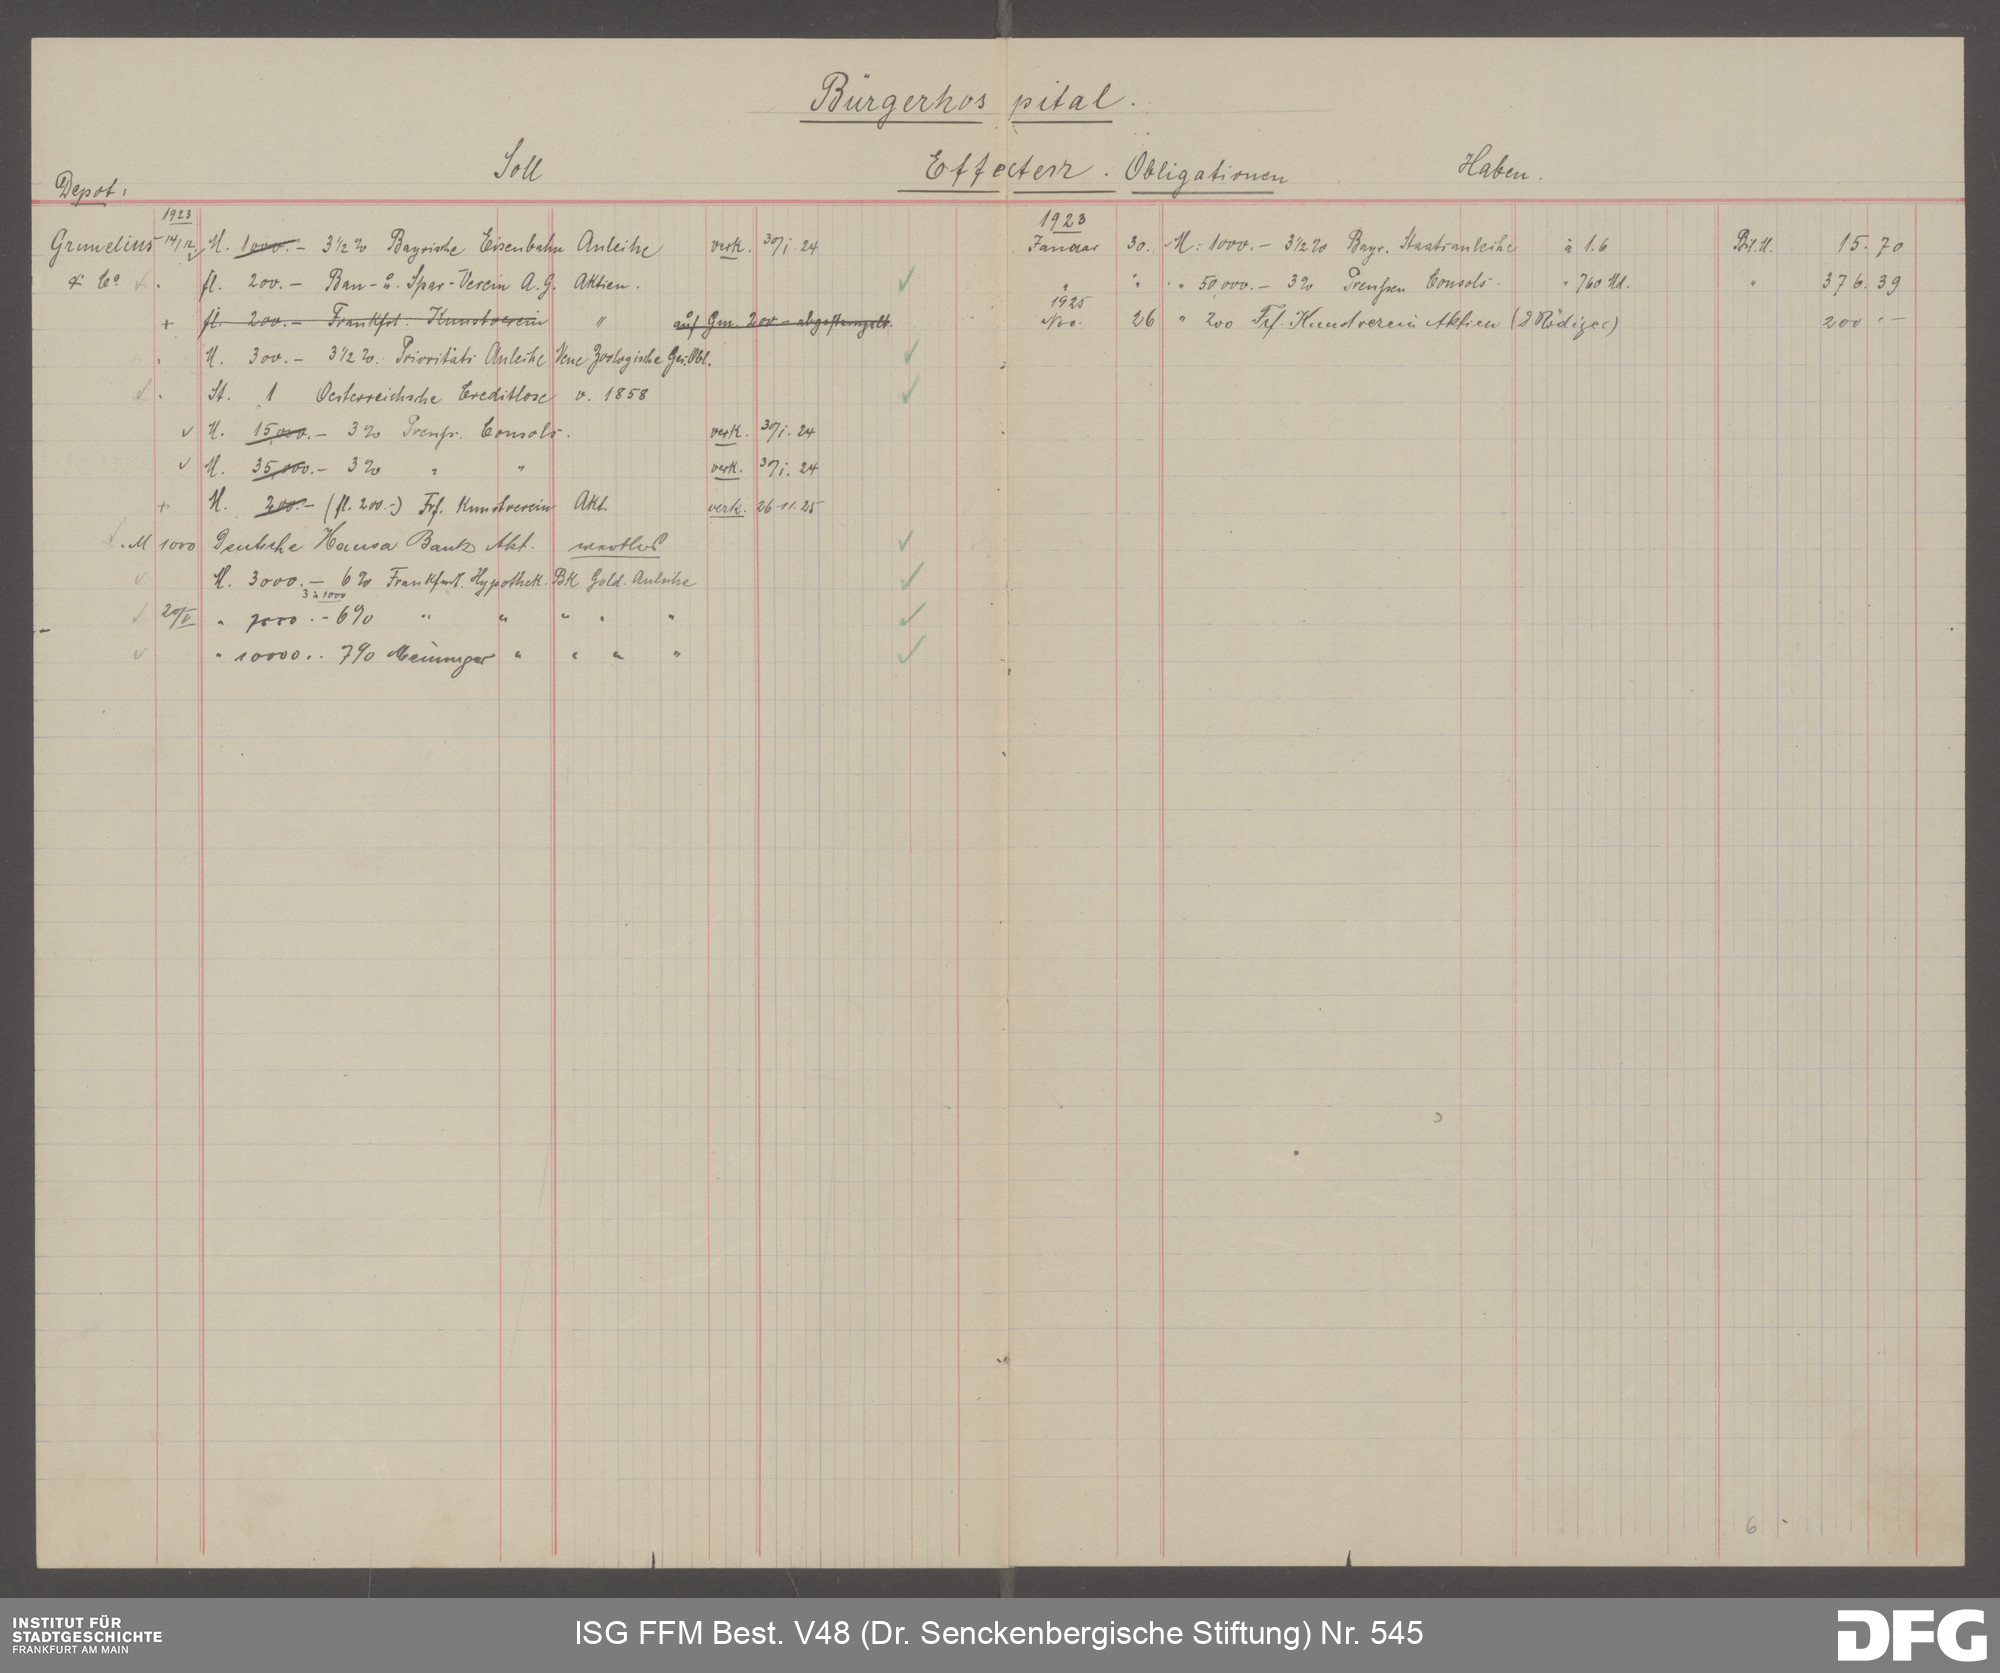 Bürgerhospital.
Soll
Effecten. Obligationen
Haben.
Depot:
1923
Grunelius 14/12 M. 1000.- 3 1/2 % Bayrische Eisenbahn Anleihe verk. 30/I. 24
& Co. fl. 200.- Bau- u. Spar-Verein A.G. Aktien.
+ fl. 200.- Frankfrt. Kunstverein " auf Gm. 200.- abgestempelt.
M. 300.- 3 1/2 %. Prioritäts Anleihe Neue Zoologische Ges. Obl.
St. 1 Oesterreichsche Creditlose v. 1858
M. 15,000.- 3% Preuss. Consols. verk. 30/I. 24
M. 35,000.- 3% " " verk. 30/I. 24
+ M. 200.- (fl. 200.-) Frf. Kunstverein Akt. verk. 26.11.25
M 1000 Deutsche Hansa Bank Akt. wertlos
M. 3000.- 6% Frankfurt. Hypothek. Bk Gold. Anleihe
3 à 1000
20/V " 7000.- 6% " " " " "
" 10000.. 7% Meininger " " " "
1923
Januar 30. M. 1000.- 3 1/2 % Bayr. Staatsanleihe à 1.6 Bil. M. 15.70
" " " 50,000.- 3% Preußen Consols. " 760 Md. " 376.39
1925
Nov. 26 " 200 Frf. Kunstverein Aktien (D Rödiger) 200.-
6
INSTITUT FÜR
STADTGESCHICHTE
FRANKFURT AM MAIN
ISG FFM Best. V48 (Dr. Senckenbergische Stiftung) Nr. 545
DFG